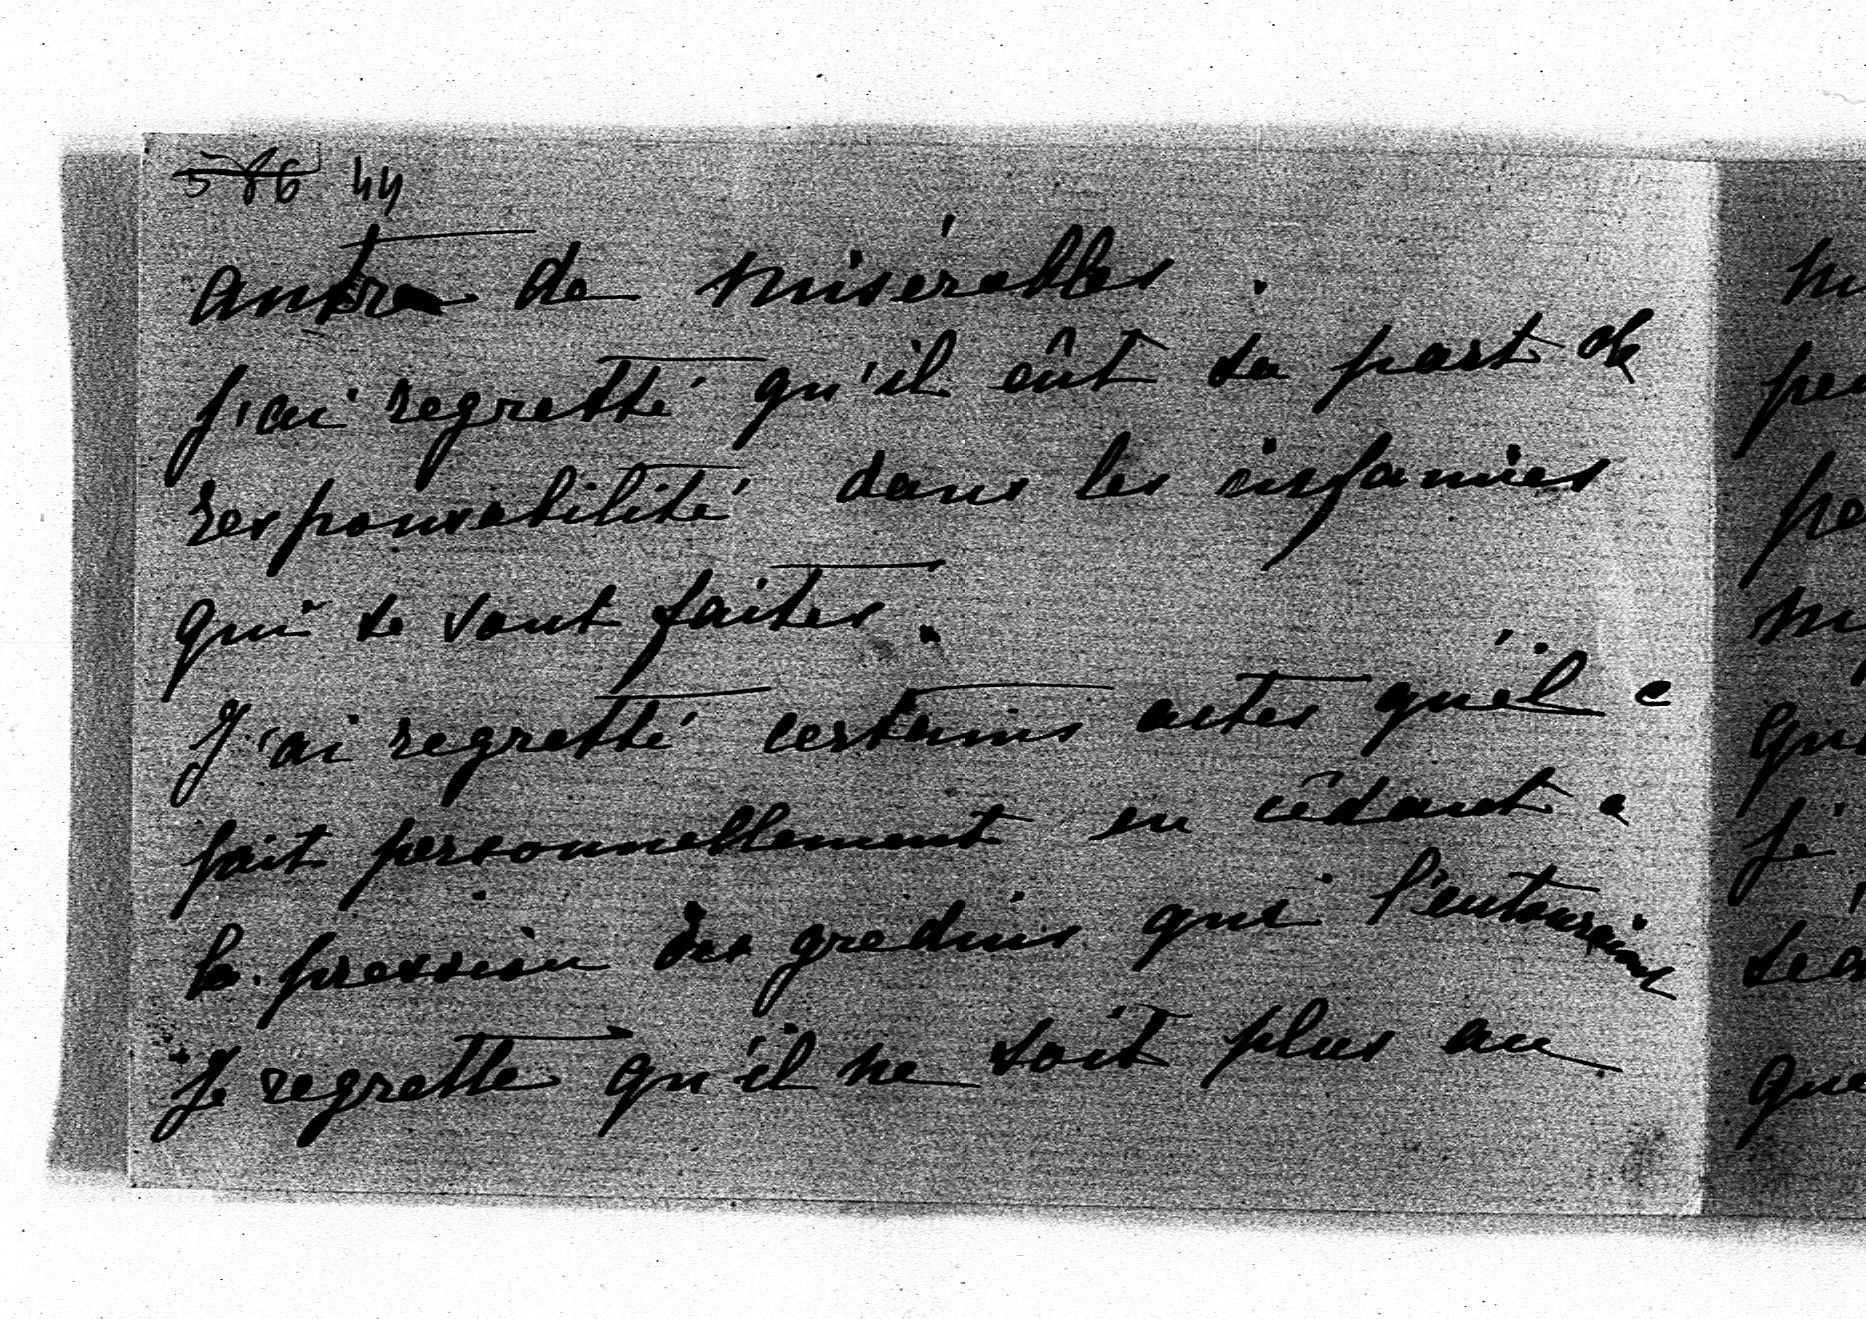 576 44
antre de misérables.
J'ai regretté qu'il eût sa part de
responsabilité dans les infamies
qui se sont faites.
J'ai regretté certains actes qu'il a
fait personnellement en cédant a
la pression des gredins qui l'entouraient
Je regrette qu'il ne soit plus au